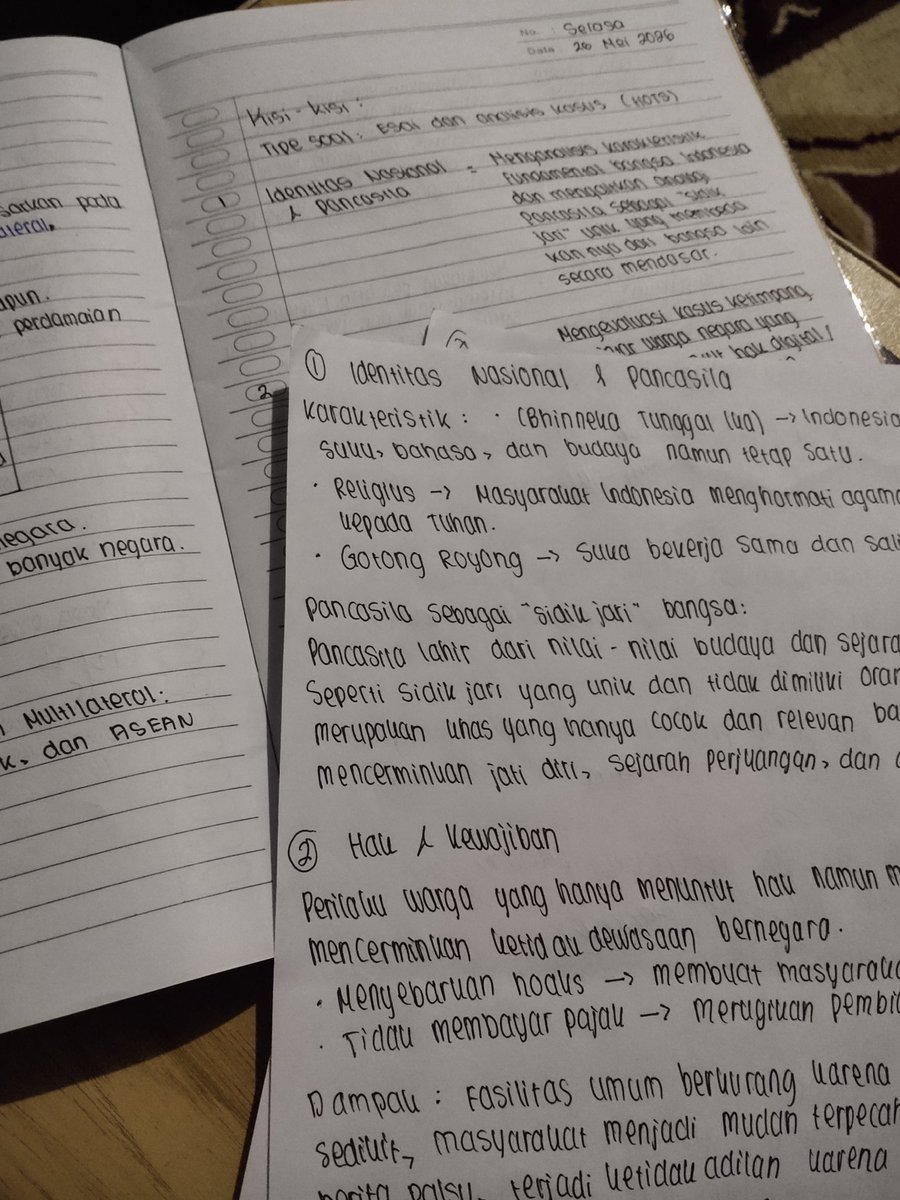 sarkan pada
ateral.
apun.
perdamaian
negara.
banyak negara.
Multilateral:
k, dan ASEAN
No. : Selasa
Date 26 Mei 2026
Kisi-kisi :
Tipe soal : Esai dan analisis kasus (HOTS)
1 Identitas Nasional = Menganalisis karakteristik
& Pancasila fundamental bangsa Indonesia
dan mengaitkan analogi
Pancasila sebagai "sidik
jari" unik yang membeda
kannya dari bangsa lain
secara mendasar.
2 Mengevaluasi kasus ketimpang
warga negara yang
hak digital /
① Identitas Nasional & Pancasila
Karakteristik : · (Bhinneka Tunggal Ika) → Indonesia
suku, bahasa, dan budaya namun tetap satu.
· Religius → Masyarakat Indonesia menghormati agama
kepada Tuhan.
· Gotong Royong → suka bekerja sama dan sali
Pancasila sebagai "sidik jari" bangsa:
Pancasila lahir dari nilai-nilai budaya dan sejara
Seperti sidik jari yang unik dan tidak dimiliki oran
merupakan khas yang hanya cocok dan relevan ba
mencerminkan jati diri, sejarah perjuangan, dan
② Hak & Kewajiban
Perilaku warga yang hanya menuntut hak namun m
mencerminkan ketidakdewasaan bernegara.
· Menyebarkan hoaks → membuat masyaraka
· Tidak membayar pajak → merugikan pemb
Dampak : Fasilitas umum berkurang karena
sedikit, masyarakat menjadi mudah terpecah
berita palsu, terjadi ketidakadilan karena